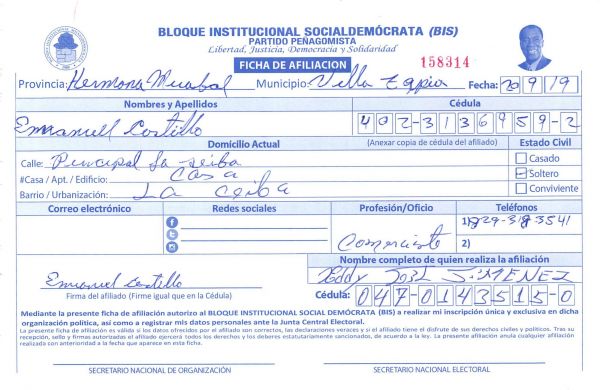 BLOQUE INSTITUCIONAL SOCIALDEMÓCRATA (BIS)
PARTIDO PEÑAGOMISTA
Libertad, Justicia, Democracia y Solidaridad
FICHA DE AFILIACION 158314
Provincia: Hermana Mirabal Municipio: Villa Tapia Fecha: 20/9/19
Nombres y Apellidos Cédula
Emmanuel Costillo 402-3136959-2
Domicilio Actual (Anexar copia de cédula del afiliado) Estado Civil
Calle: Principal La ceiba Casado
#Casa / Apt. / Edificio: Casa Soltero
Barrio / Urbanización: La Ceiba Conviviente
Correo electrónico Redes sociales Profesión/Oficio Teléfonos
1) 829-318-3541
Comerciante 2)
Nombre completo de quien realiza la afiliación
Emanuel Costillo Eddy José JiMENEZ
Firma del afiliado (Firme igual que en la Cédula) Cédula: 047-0143515-0
Mediante la presente ficha de afiliación autorizo al BLOQUE INSTITUCIONAL SOCIAL DEMÓCRATA (BIS) a realizar mi inscripción única y exclusiva en dicha
organización política, así como a registrar mis datos personales ante la Junta Central Electoral.
La presente ficha de afiliación es válida si los datos ofrecidos por el afiliado son correctos, las declaraciones veraces y si el afiliado tiene el disfrute de sus derechos civiles y políticos. Tras su
recepción, sello y firmas autorizadas el afiliado ejercerá todos los derechos y los deberes estatutariamente sancionados, de acuerdo a la ley. La presente afiliación anula cualquier afiliación
realizada con anterioridad a la fecha que aparece en esta ficha.
SECRETARIO NACIONAL DE ORGANIZACIÓN SECRETARIO NACIONAL ELECTORAL